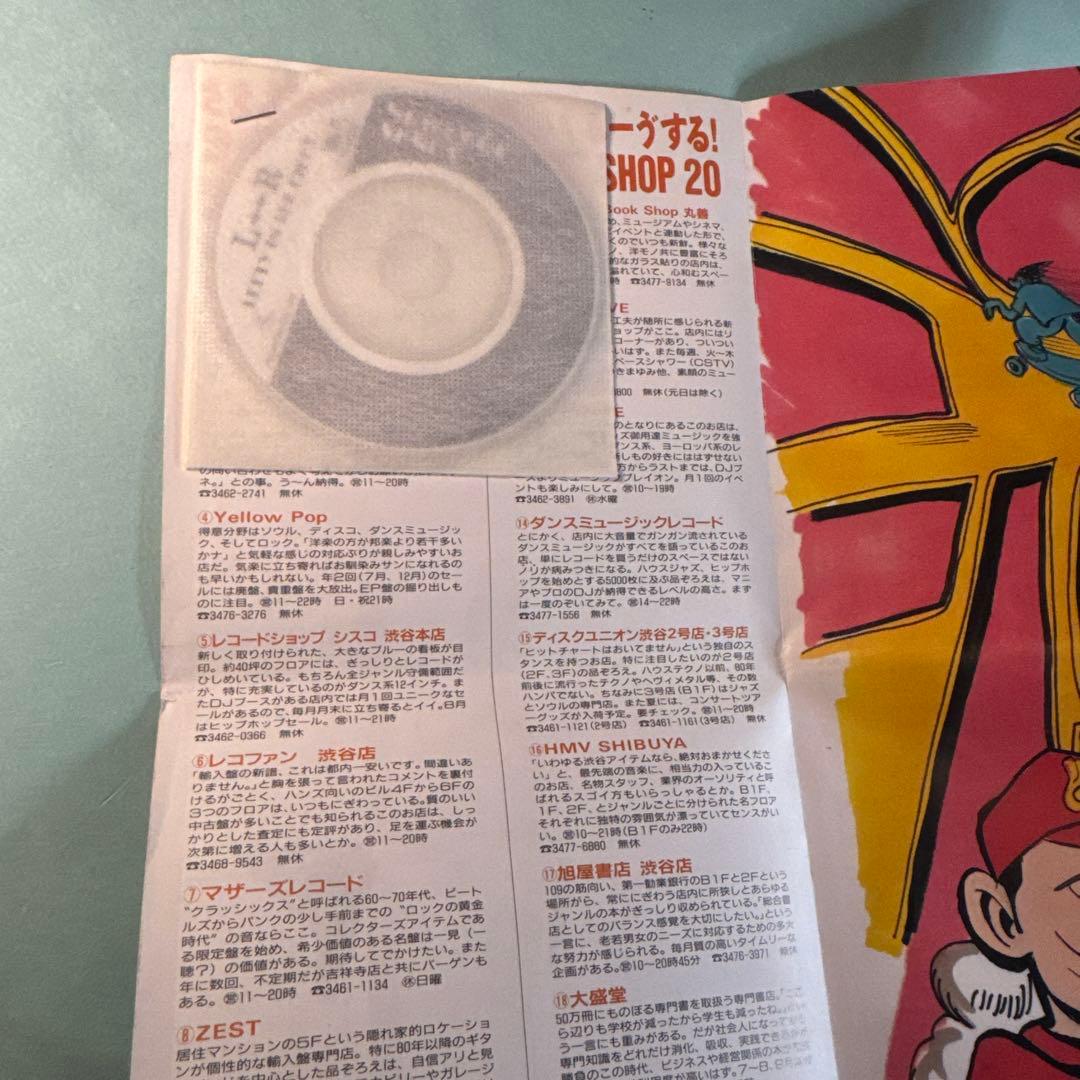 ーゔする!
SHOP 20
Book Shop 丸善
め、ミュージアムやシネマ、
イベントと連動した形で、
くのでいつも新鮮。様々な
ノ、洋モノ共に豊富にそろ
的なガラス貼りの店内は、
溢れていて、心和むスペー
時 ☎3477-9134 無休
VE
工夫が随所に感じられる新
ョップがここ。店内にはリ
コーナーがあり、ついつい
いはず。また毎週、火〜木
ペースシャワー(CSTV)
きまゆみ他、素顔のミュー
800 無休(元日は除く)
E
のとなりにあるこのお店は、
ズ御用達ミュージックを強
ダンス系、ヨーロッパ系のレ
新しもの好きにははずせない
方からラストまでは、DJブ
ースよりミュージックプレイオン。月1回のイベ
ントも楽しみにして。営10〜19時
☎3462-3891 休水曜
ネ。」との事。う〜ん納得。営11〜20時
☎3462-2741 無休
④Yellow Pop
得意分野はソウル、ディスコ、ダンスミュージッ
ク、そしてロック。「洋楽の方が邦楽より若干多い
かナ」と気軽な感じの対応ぶりが親しみやすいお
店だ。気楽に立ち寄ればお馴染みサンになれるの
も早いかもしれない。年2回(7月、12月)のセー
ルには廃盤、貴重盤を大放出。EP盤の掘り出しも
のに注目。営11〜22時 日・祝21時
☎3476-3276 無休
⑤レコードショップ シスコ 渋谷本店
新しく取り付けられた、大きなブルーの看板が目
印。約40坪のフロアには、ぎっしりとレコードが
ひしめいている。もちろん全ジャンル守備範囲だ
が、特に充実しているのがダンス系12インチ。ま
たDJブースがある店内では月1回ユニークなセ
ールがあるので、毎月月末に立ち寄るとイイ。8月
はヒップホップセール。営11〜21時
☎3462-0366 無休
⑥レコファン 渋谷店
「輸入盤の新譜、これは都内一安いです。間違いあ
りません。」と胸を張って言われたコメントを裏付
けるがごとく、ハンズ向いのビル4Fから6Fの
3つのフロアは、いつもにぎわっている。質のいい
中古盤が多いことでも知られるこのお店は、しっ
かりとした査定にも定評があり、足を運ぶ機会が
次第に増える人も多いとか。営11〜20時
☎3468-9543 無休
⑦マザーズレコード
“クラッシックス”と呼ばれる60〜70年代、ビート
ルズからパンクの少し手前までの“ロックの黄金
時代”の音ならここ。コレクターズアイテムであ
る限定盤を始め、希少価値のある名盤は一見(一
聴?)の価値がある。期待してでかけたい。また
年に数回、不定期だが吉祥寺店と共にバーゲンも
ある。営11〜20時 ☎3461-1134 休日曜
⑧ZEST
居住マンションの5Fという隠れ家的ロケーショ
ンが個性的な輸入盤専門店。特に80年以降のギタ
を中心とした品ぞろえは、自信アリと見
⑭ダンスミュージックレコード
とにかく、店内に大音量でガンガン流されている
ダンスミュージックがすべてを語っているこのお
店、単にレコードを買うだけのスペースではない
ノリが病みつきになる。ハウスジャズ、ヒップホ
ップを始めとする5000枚に及ぶ品ぞろえは、マニ
アやプロのDJが納得できるレベルの高さ。まず
は一度のぞいてみて。営14〜22時
☎3477-1556 無休
⑮ディスクユニオン渋谷2号店・3号店
「ヒットチャートはおいてません」という独自のス
タンスを持つお店。特に注目したいのが2号店
(2F、3F)の品ぞろえ。ハウステクノ以前、80年
前後に流行ったテクノやヘヴィメタル等、その数
ハンパでない。ちなみに3号店(B1F)はジャズ
とソウルの専門店。また夏には、コンサートツア
ーグッズが入荷予定。要チェック。営11〜20時
☎3461-1121(2号店) ☎3461-1161(3号店) 無休
⑯HMV SHIBUYA
「いわゆる渋谷アイテムなら、絶対おまかせくださ
い」と、最先端の音楽に、相当力の入っているこ
のお店、名物スタッフ、業界のオーソリティと呼
ばれるスゴイ方もいらっしゃるとか。B1F、
1F、2F、とジャンルごとに分けられた名フロア
それぞれに独特の雰囲気が漂っていてセンスがい
い。営10〜21時(B1Fのみ22時)
☎3477-6880 無休
⑰旭屋書店 渋谷店
109の筋向い、第一勧業銀行のB1Fと2Fという
場所から、常ににぎわう店内に所狭しとあらゆる
ジャンルの本がぎっしり収められている。「総合書
店としてのバランス感覚を大切にしたい。」という
一言に、老若男女のニーズに対応するための多大
な努力が感じられる。毎月質の高いタイムリーな
企画がある。営10〜20時45分 ☎3476-3971 無休
⑱大盛堂
50万冊にものぼる専門書を取扱う専門書店。「ここ
ら辺りも学校が減ったから学生も減ったね。」
う一言にも重みがある。だが社会人になって
専門知識をどれだけ消化、吸収、実践でき
勝負のこの時代、ビジネスや経営関係の本が